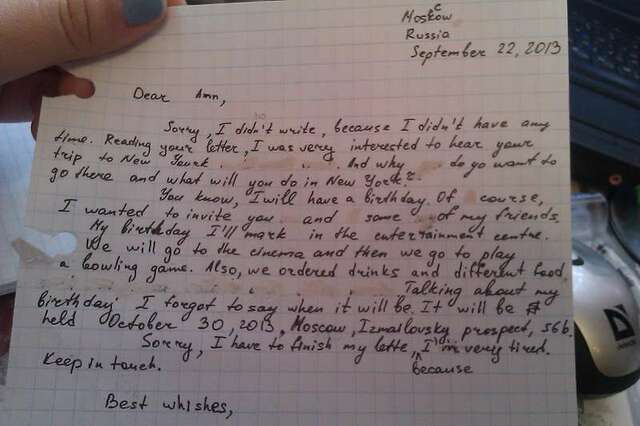 Moskow
c
Russia
September 22, 2013
Dear Ann,
Sorry, I didn't write, because I didn't have any
time. Reading your letter, I was very interested to hear your
trip to New Yourk. And why do go want to
go there and what will you do in New York?
You know, I will have a birthday. Of course,
I wanted to invite you and some of my friends.
My birthday I'll mark in the entertainment centre.
We will go to the cinema and then we go to play
a bowling game. Also, we ordered drinks and different food.
Talking about my
birthday I forgot to say when it will be. It will be
held October 30, 2013, Moscow, Izmailovsky prospect, 56b.
Sorry, I have to finish my lette, I'm very tired.
Keep in touch. because
Best whishes,